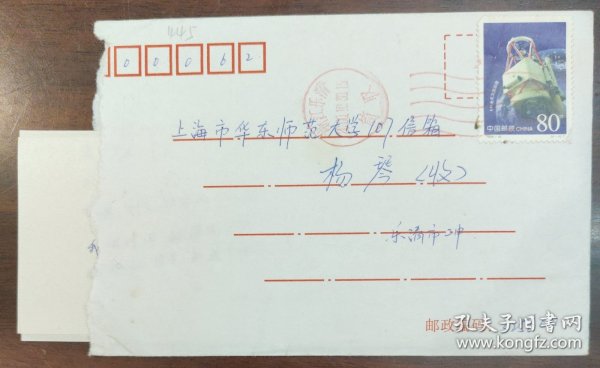 1145
0 0 0 6 2
中国邮政 CHINA 80分
上海市华东师范大学107信箱
杨琴（收）
乐清市二中
邮政编码
孔夫子旧书网
www.kongfz.com